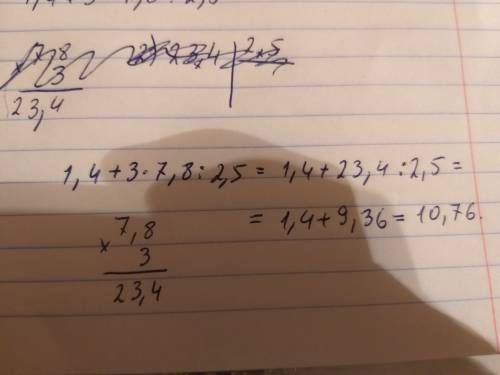 7,8
3
23,4
1,4+3·7,8:2,5 = 1,4+23,4:2,5=
= 1,4+9,36=10,76.
× 7,8
3
23,4